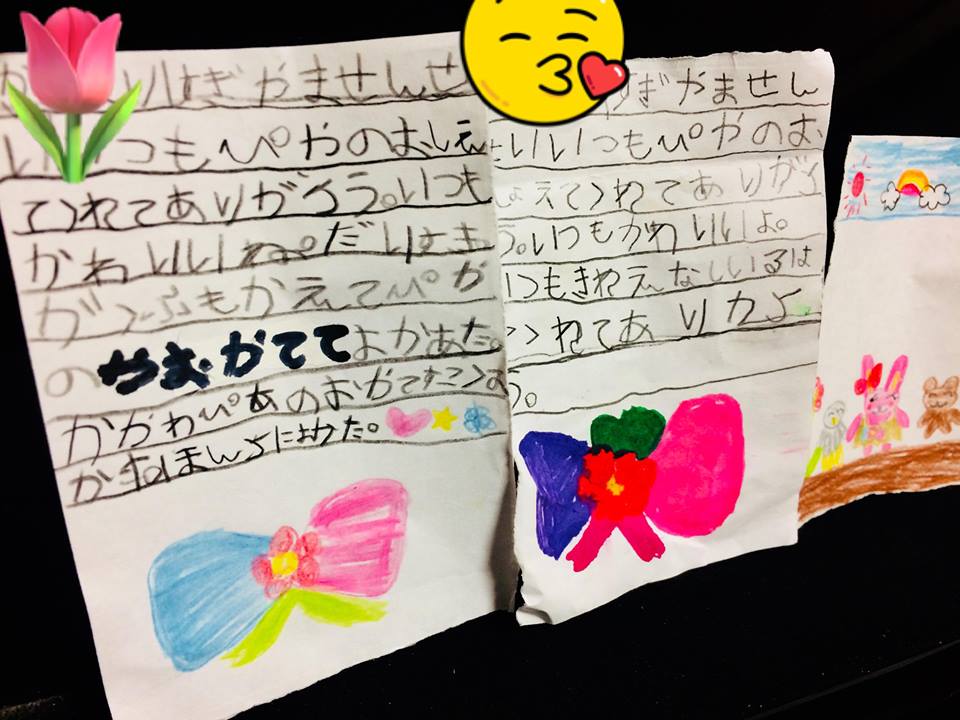 はぎやませんせ
いつもぴやのおしえ
てくれてありがとう。いつも
かわいいね。だい
がくふもかえてぴが
のやおがててよかあた。
かがわぴあのおがてた
ほん
ぎやません
いいつもぴやのお
しょえてくれてありがと
う。いつもかわいいよ。
いつもきれえなしいるは
くれてありがと
う。